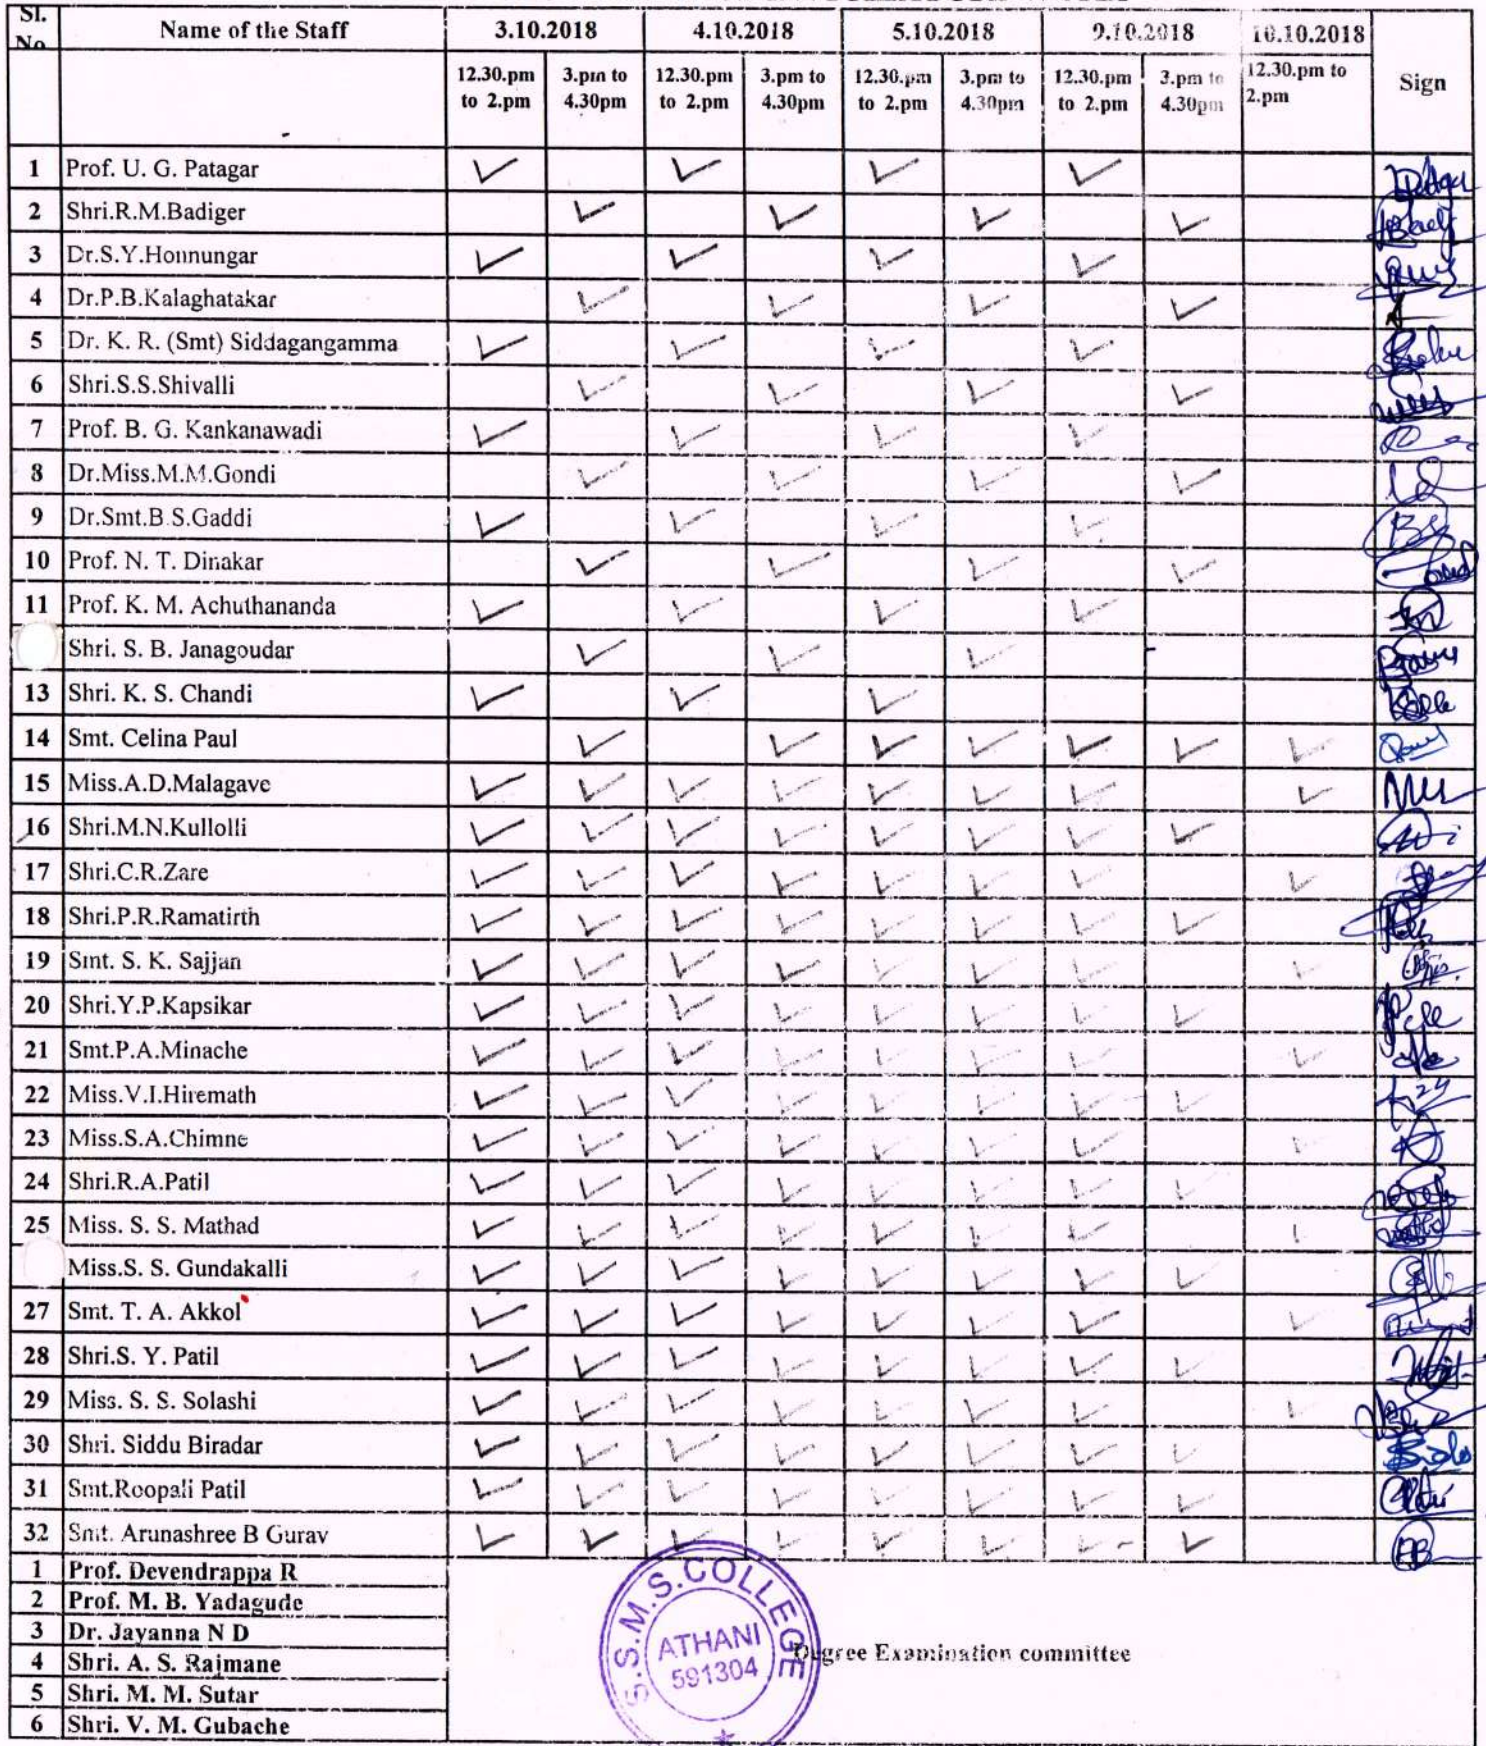 Sl. No Name of the Staff 3.10.2018 4.10.2018 5.10.2018 9.10.2018 10.10.2018 Sign
12.30.pm to 2.pm 3.pm to 4.30pm 12.30.pm to 2.pm 3.pm to 4.30pm 12.30.pm to 2.pm 3.pm to 4.30pm 12.30.pm to 2.pm 3.pm to 4.30pm 12.30.pm to 2.pm
1 Prof. U. G. Patagar
2 Shri.R.M.Badiger
3 Dr.S.Y.Honnungar
4 Dr.P.B.Kalaghatakar
5 Dr. K. R. (Smt) Siddagangamma
6 Shri.S.S.Shivalli
7 Prof. B. G. Kankanawadi
8 Dr.Miss.M.M.Gondi
9 Dr.Smt.B.S.Gaddi
10 Prof. N. T. Dinakar
11 Prof. K. M. Achuthananda
Shri. S. B. Janagoudar
13 Shri. K. S. Chandi
14 Smt. Celina Paul
15 Miss.A.D.Malagave
16 Shri.M.N.Kullolli
17 Shri.C.R.Zare
18 Shri.P.R.Ramatirth
19 Smt. S. K. Sajjan
20 Shri.Y.P.Kapsikar
21 Smt.P.A.Minache
22 Miss.V.I.Hiremath
23 Miss.S.A.Chimne
24 Shri.R.A.Patil
25 Miss. S. S. Mathad
Miss.S. S. Gundakalli
27 Smt. T. A. Akkol
28 Shri.S. Y. Patil
29 Miss. S. S. Solashi
30 Shri. Siddu Biradar
31 Smt.Roopali Patil
32 Smt. Arunashree B Gurav
1 Prof. Devendrappa R
2 Prof. M. B. Yadagude
3 Dr. Jayanna N D
4 Shri. A. S. Rajmane
5 Shri. M. M. Sutar
6 Shri. V. M. Gubache
Degree Examination committee
S.S.M.S.COLLEGE
ATHANI
591304